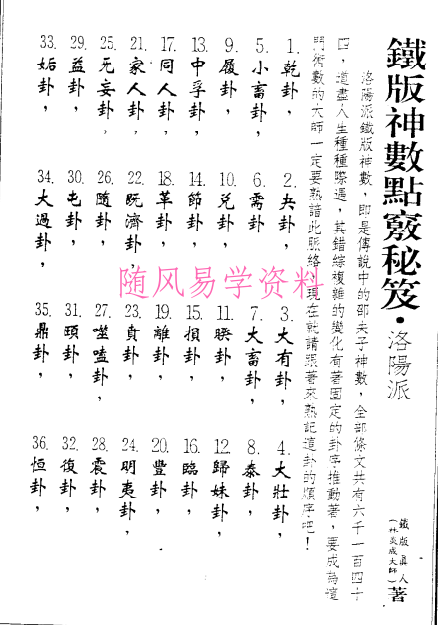 鐵版神數點竅秘笈・洛陽派
鐵版真人
(林炎成大師)
著
洛陽派鐵版神數,即是傳說中的邵夫子神數,全部條文共有六千一百四十
四,道盡人生種種際遇,其錯綜複雜的變化有著固定的卦字推動著,要成為這
門術數的大師一定要熟諳此脈絡,現在就請跟著來熟記這卦的順序吧!
1.乾卦, 2.夬卦, 3.大有卦, 4.大壯卦,
5.小畜卦, 6.需卦, 7.大畜卦, 8.泰卦,
9.履卦, 10.兌卦, 11.睽卦, 12.歸妹卦,
13.中孚卦, 14.節卦, 15.損卦, 16.臨卦,
17.同人卦, 18.革卦, 19.離卦, 20.豐卦,
21.家人卦, 22.既濟卦, 23.賁卦, 24.明夷卦,
25.无妄卦, 26.隨卦, 27.噬嗑卦, 28.震卦,
29.益卦, 30.屯卦, 31.頤卦, 32.復卦,
33.姤卦, 34.大過卦, 35.鼎卦, 36.恒卦,
随风易学资料